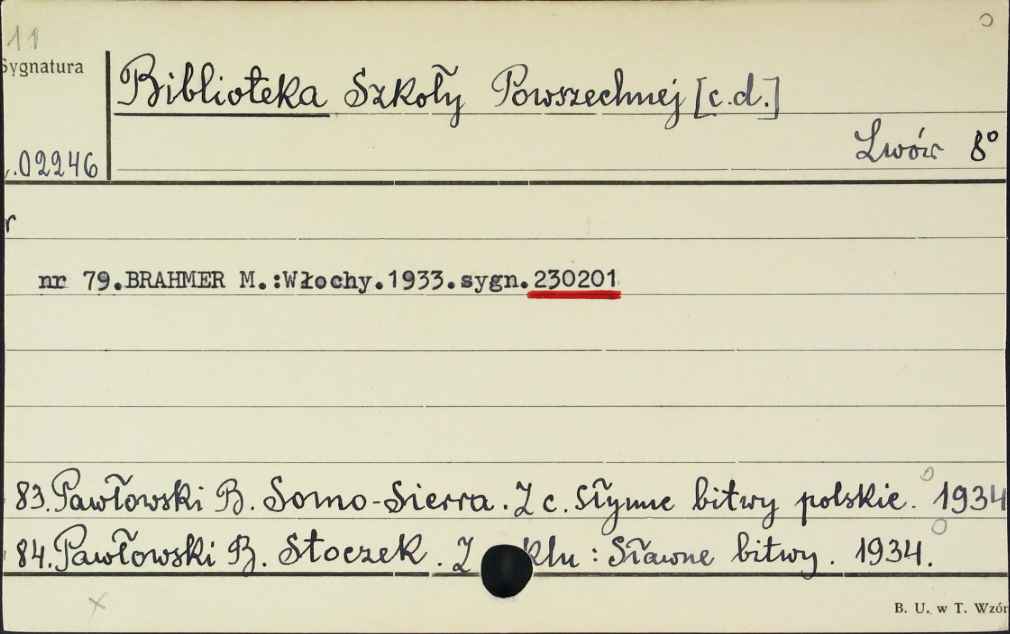 11
Sygnatura
Biblioteka Szkoły Powszechnej [c.d.]
Lwów 8°
.02246
r
nr 79.BRAHMER M.:Włochy.1933.sygn.230201
83. Pawłowski B. Somo-Sierra. Z c. Słynne bitwy polskie. 1934
84. Pawłowski B. Stoczek. Z klu: Sławne bitwy. 1934.
x
B. U. w T. Wzór